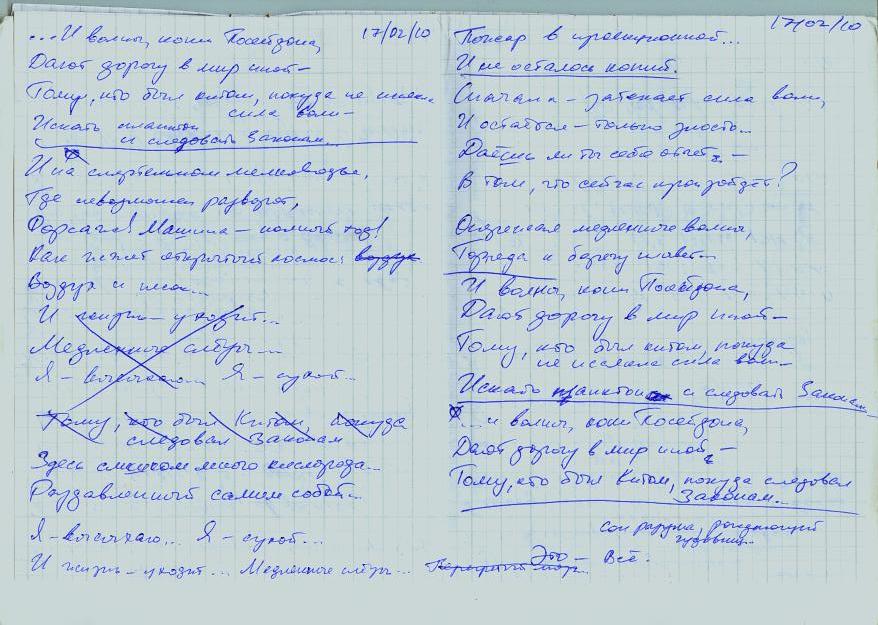 ...И волны, кони Посейдона, 17/02/10
Дают дорогу в мир иной –
Тому, кто был китом, покуда не иссякла
сила воли –
Искать планктон
и следовать Законам...
И на смертельном мелководье,
Где невозможен разворот,
Форсаж! Машина – полный ход!
Как лижет открытый космос: воздух
Воздух и песок...
И жизнь – уходит...
Медленные смерть...
Я – высыхаю... Я – сухой...
Тому, кто был Китом, покуда
следовал Законам
Здесь слишком много кислорода...
Раздавленный самим собой...
Я – высыхаю... Я – сухой...
И жизнь – уходит... Медленные смерть...
17/02/10
Пожар в проекционной...
И не осталось копий.
Сначала – затекает сила воли,
И остаётся – только злость...
Даёшь ли ты себе отчёт –
В том, что сейчас произойдёт?
Опережая медленные волны,
Торпеда к берегу плывёт...
И волны, кони Посейдона,
Дают дорогу в мир иной –
Тому, кто был китом, покуда
не иссякла сила воли –
Искать планктон и следовать Законам...
... и волны, кони Посейдона,
Дают дорогу в мир иной –
Тому, кто был Китом, покуда следовал
Законам...
сон разума, рождающий
чудовищ...
Это –
Всё.